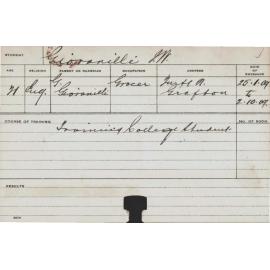 STUDENT
Giovanelli J W
AGE RELIGION PARENT OR GUARDIAN OCCUPATION ADDRESS DATE OF ENTRANCE
21 Eng. G. Giovanelli Grocer Grafton 25-1-09 to 2-10-09
COURSE OF TRAINING. NO. OF ROOM.
Training College Student
RESULTS